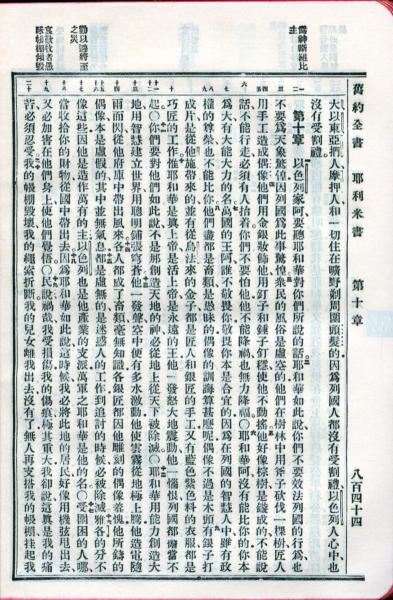 舊約全書　耶利米書　第十章　八百四十四
僞神斷難比
主
勸以避將至
之災
大以東亞捫人摩押人和一切住在曠野剃周圍頭髮的因爲列國人都沒有受割禮以色列人心中也
沒有受割禮
第十章　以色列家阿要聽耶和華對你們所說的話耶和華如此說你們不要效法列國的行爲也
不要爲天象驚惶因列國爲此事驚惶衆民的風俗是虛空的他們在樹林中用斧子砍伐一棵樹匠人
用手工造成偶像他們用金銀妝飾他用釘子和錘子釘穩使他不動搖他好像棕樹是鏇成的不能說
話不能行走必須有人抬着你們不要怕他他不能降禍也無力降福○耶和華阿沒有能比你的你本
爲大有大能大力的名萬國的王阿誰不敬畏你敬畏你本是合宜的因爲在列國的智慧人中雖有政
權的尊榮也不能比你他們盡都是畜類是愚昧的偶像的訓誨算甚麼呢偶像不過是木頭有銀子打
成片是從他施帶來的並有從烏法來的金子都是匠人和銀匠的手工又有藍色紫色料的衣服都是
巧匠的工作惟耶和華是眞主是活上帝是永遠的王他一發怒大地震動他一惱恨列國都擔當不
起○你們要對他們如此說不是那創造天地的神必從地上從天下被除滅○耶和華用能力創造大
地用智慧建立世界用聰明鋪張穹蒼他一發聲空中便有多水激動他使雲霧從地極上騰他造電隨
雨而閃從他府庫中帶出風來各人都成了畜類毫無知識各銀匠都因他雕刻的偶像羞愧他所鑄的
偶像本是虛假的其中並無氣息都是虛無的是迷惑人的工作到追討的時候必被除滅雅各的分不
像這些因他是造作萬有的主以色列也是他產業的支派萬軍之耶和華是他的名○受圍困的人哪
當收拾你的財物從國中帶出去因爲耶和華如此說這時候我必將此地的居民好像用機弦甩出去
又必加害在他們身上使他們覺悟○民說禍哉我受損傷我的傷痕極其重大我卻說這眞是我的痛
苦必須忍受我的帳棚毀壞我的繩索折斷我的兒女離我出去沒有了無人再支搭我的帳棚挂起我